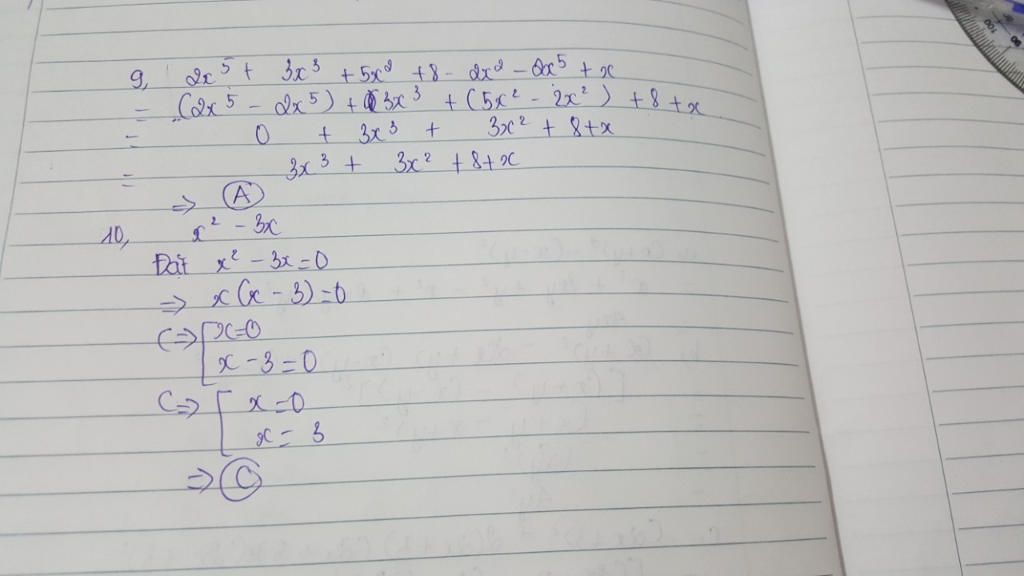 9, 2x⁵ + 3x³ + 5x² + 8 - 2x² - 2x⁵ + x
= (2x⁵ - 2x⁵) + 3x³ + (5x² - 2x²) + 8 + x
= 0 + 3x³ + 3x² + 8 + x
= 3x³ + 3x² + 8 + x
=> A
10, x² - 3x
Đặt x² - 3x = 0
=> x(x - 3) = 0
<=> [ x = 0
x - 3 = 0
<=> [ x = 0
x = 3
=> C